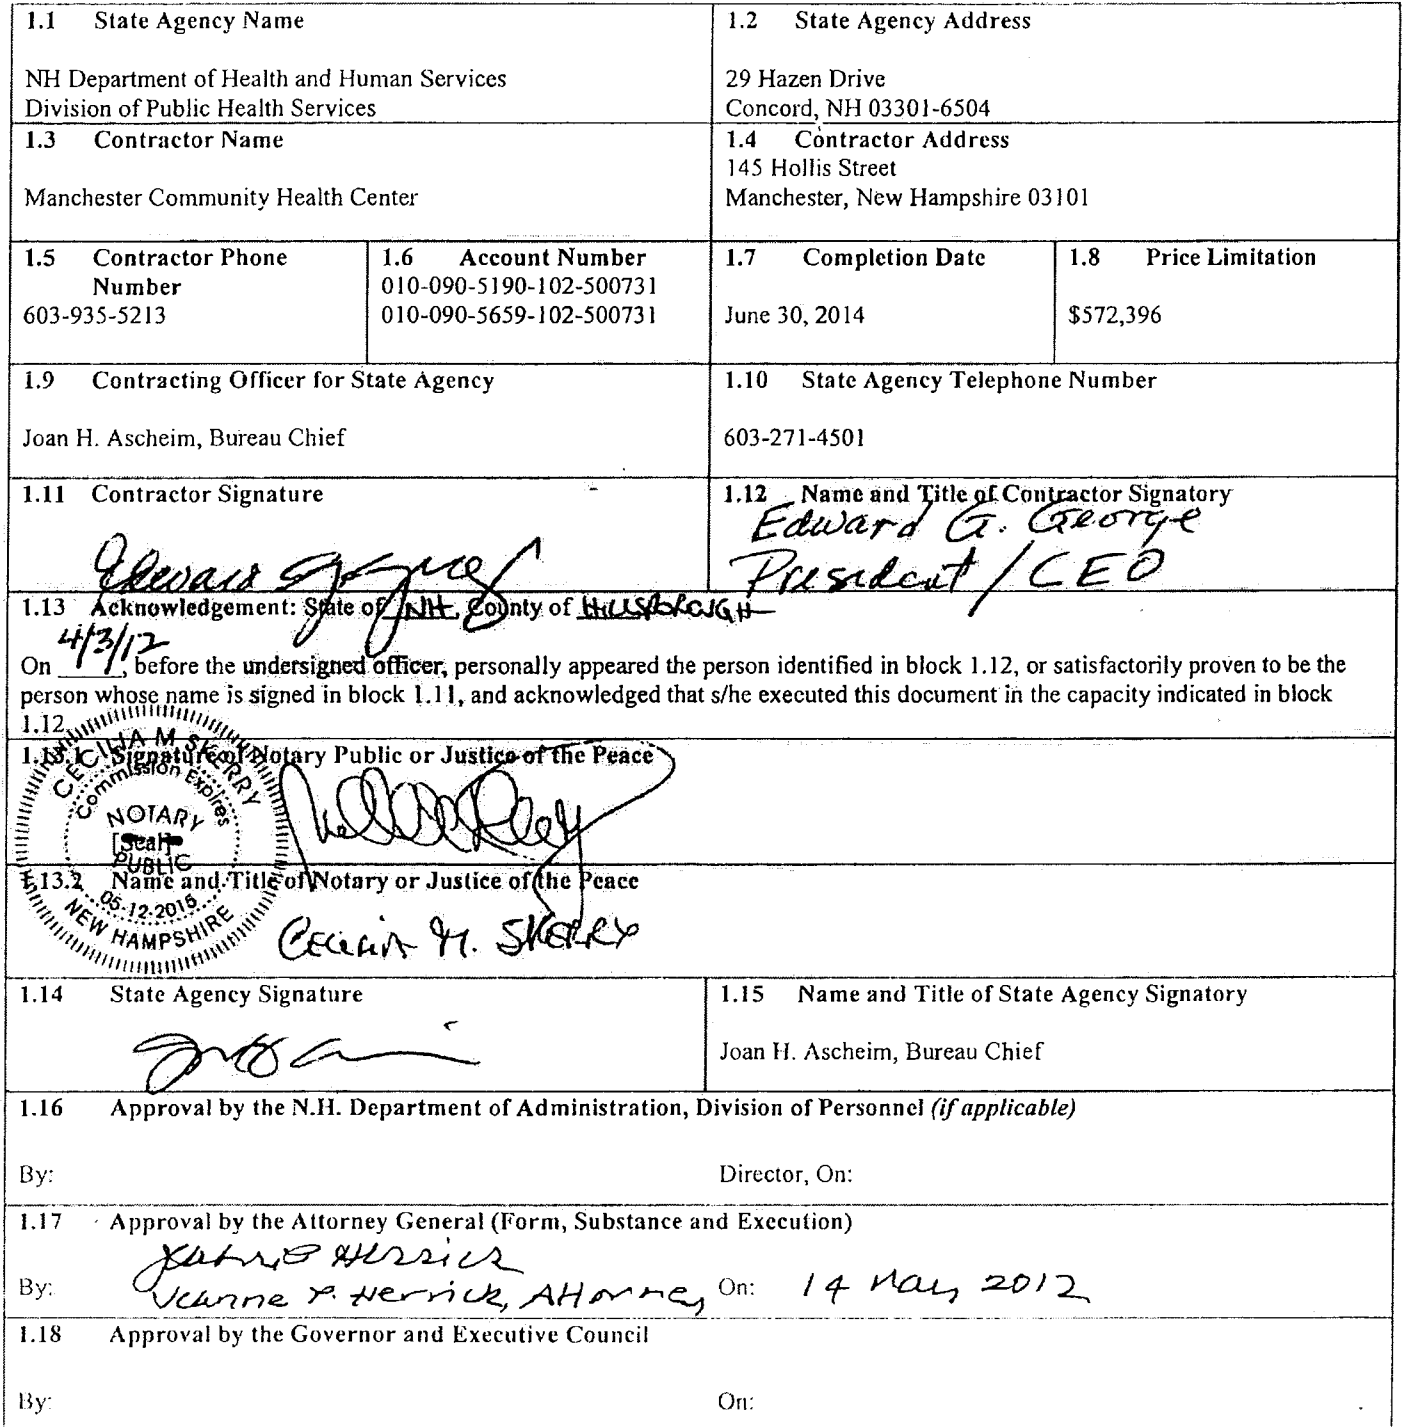 1.1 State Agency Name
NH Department of Health and Human Services
Division of Public Health Services
1.2 State Agency Address
29 Hazen Drive
Concord, NH 03301-6504
1.3 Contractor Name
Manchester Community Health Center
1.4 Contractor Address
145 Hollis Street
Manchester, New Hampshire 03101
1.5 Contractor Phone
Number
603-935-5213
1.6 Account Number
010-090-5190-102-500731
010-090-5659-102-500731
1.7 Completion Date
June 30, 2014
1.8 Price Limitation
$572,396
1.9 Contracting Officer for State Agency
Joan H. Ascheim, Bureau Chief
1.10 State Agency Telephone Number
603-271-4501
1.11 Contractor Signature
1.12 Name and Title of Contractor Signatory
Edward G. George
President / CEO
1.13 Acknowledgement: State of NH, County of HILLSBOROUGH
On 4/3/12, before the undersigned officer, personally appeared the person identified in block 1.12, or satisfactorily proven to be the
person whose name is signed in block 1.11, and acknowledged that s/he executed this document in the capacity indicated in block
1.12.
1.13.1 Signature of Notary Public or Justice of the Peace
CECILIA M SKERRY
Commission Expires
NOTARY
[Seal]
PUBLIC
05-12-2015
NEW HAMPSHIRE
1.13.2 Name and Title of Notary or Justice of the Peace
CECILIA M. SKERRY
1.14 State Agency Signature
1.15 Name and Title of State Agency Signatory
Joan H. Ascheim, Bureau Chief
1.16 Approval by the N.H. Department of Administration, Division of Personnel (if applicable)
By: Director, On:
1.17 Approval by the Attorney General (Form, Substance and Execution)
By: Jeanne P. Herrick, Attorney On: 14 May 2012
1.18 Approval by the Governor and Executive Council
By: On: